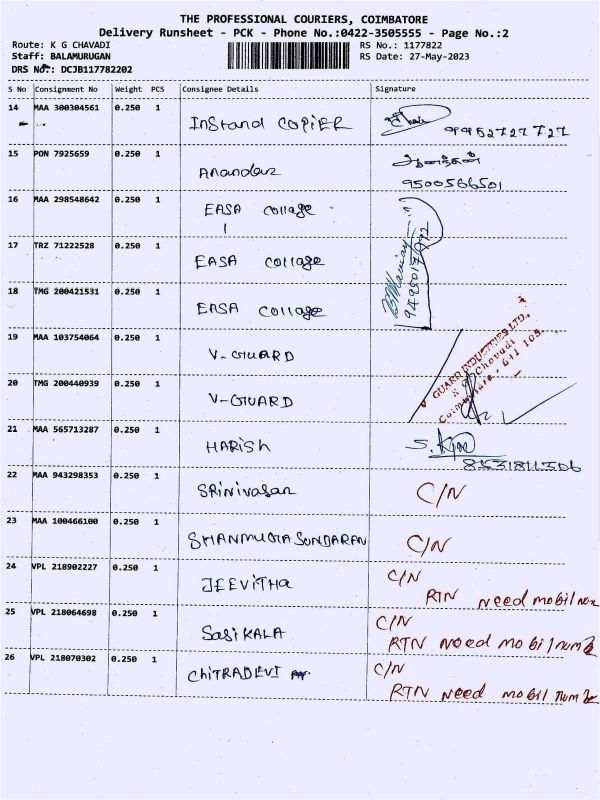 THE PROFESSIONAL COURIERS, COIMBATORE
Delivery Runsheet - PCK - Phone No.:0422-3505555 - Page No.:2
Route: K G CHAVADI RS No.: 1177822
Staff: BALAMURUGAN RS Date: 27-May-2023
DRS No.: DCJB117782202
S No Consignment No Weight PCS Consignee Details Signature
14 MAA 300304561 0.250 1 InStand COPiER 9952727727
15 PON 7925659 0.250 1 Anandan ஆனந்தன்
9500566501
16 MAA 298548642 0.250 1 EASA Collage
17 TRZ 71222528 0.250 1 EASA Collage
18 TMG 200421531 0.250 1 EASA Collage
19 MAA 103754064 0.250 1 V-GUARD
20 TMG 200440939 0.250 1 V-GUARD
GUARD INDUSTRIES LTD.,
K G Chavadi
Coimbatore - 641 105
21 MAA 565713287 0.250 1 HARISH
22 MAA 943298353 0.250 1 SRiNivasan C/N
23 MAA 100466100 0.250 1 SHANMUGA SUNDARAN C/N
24 VPL 218902227 0.250 1 JEEViTHA C/N
RTN need mobil
25 VPL 218064698 0.250 1 SaSiKALA C/N
RTN need mobil num
26 VPL 218070302 0.250 1 CHiTRADEVI C/N
RTN need mobil num